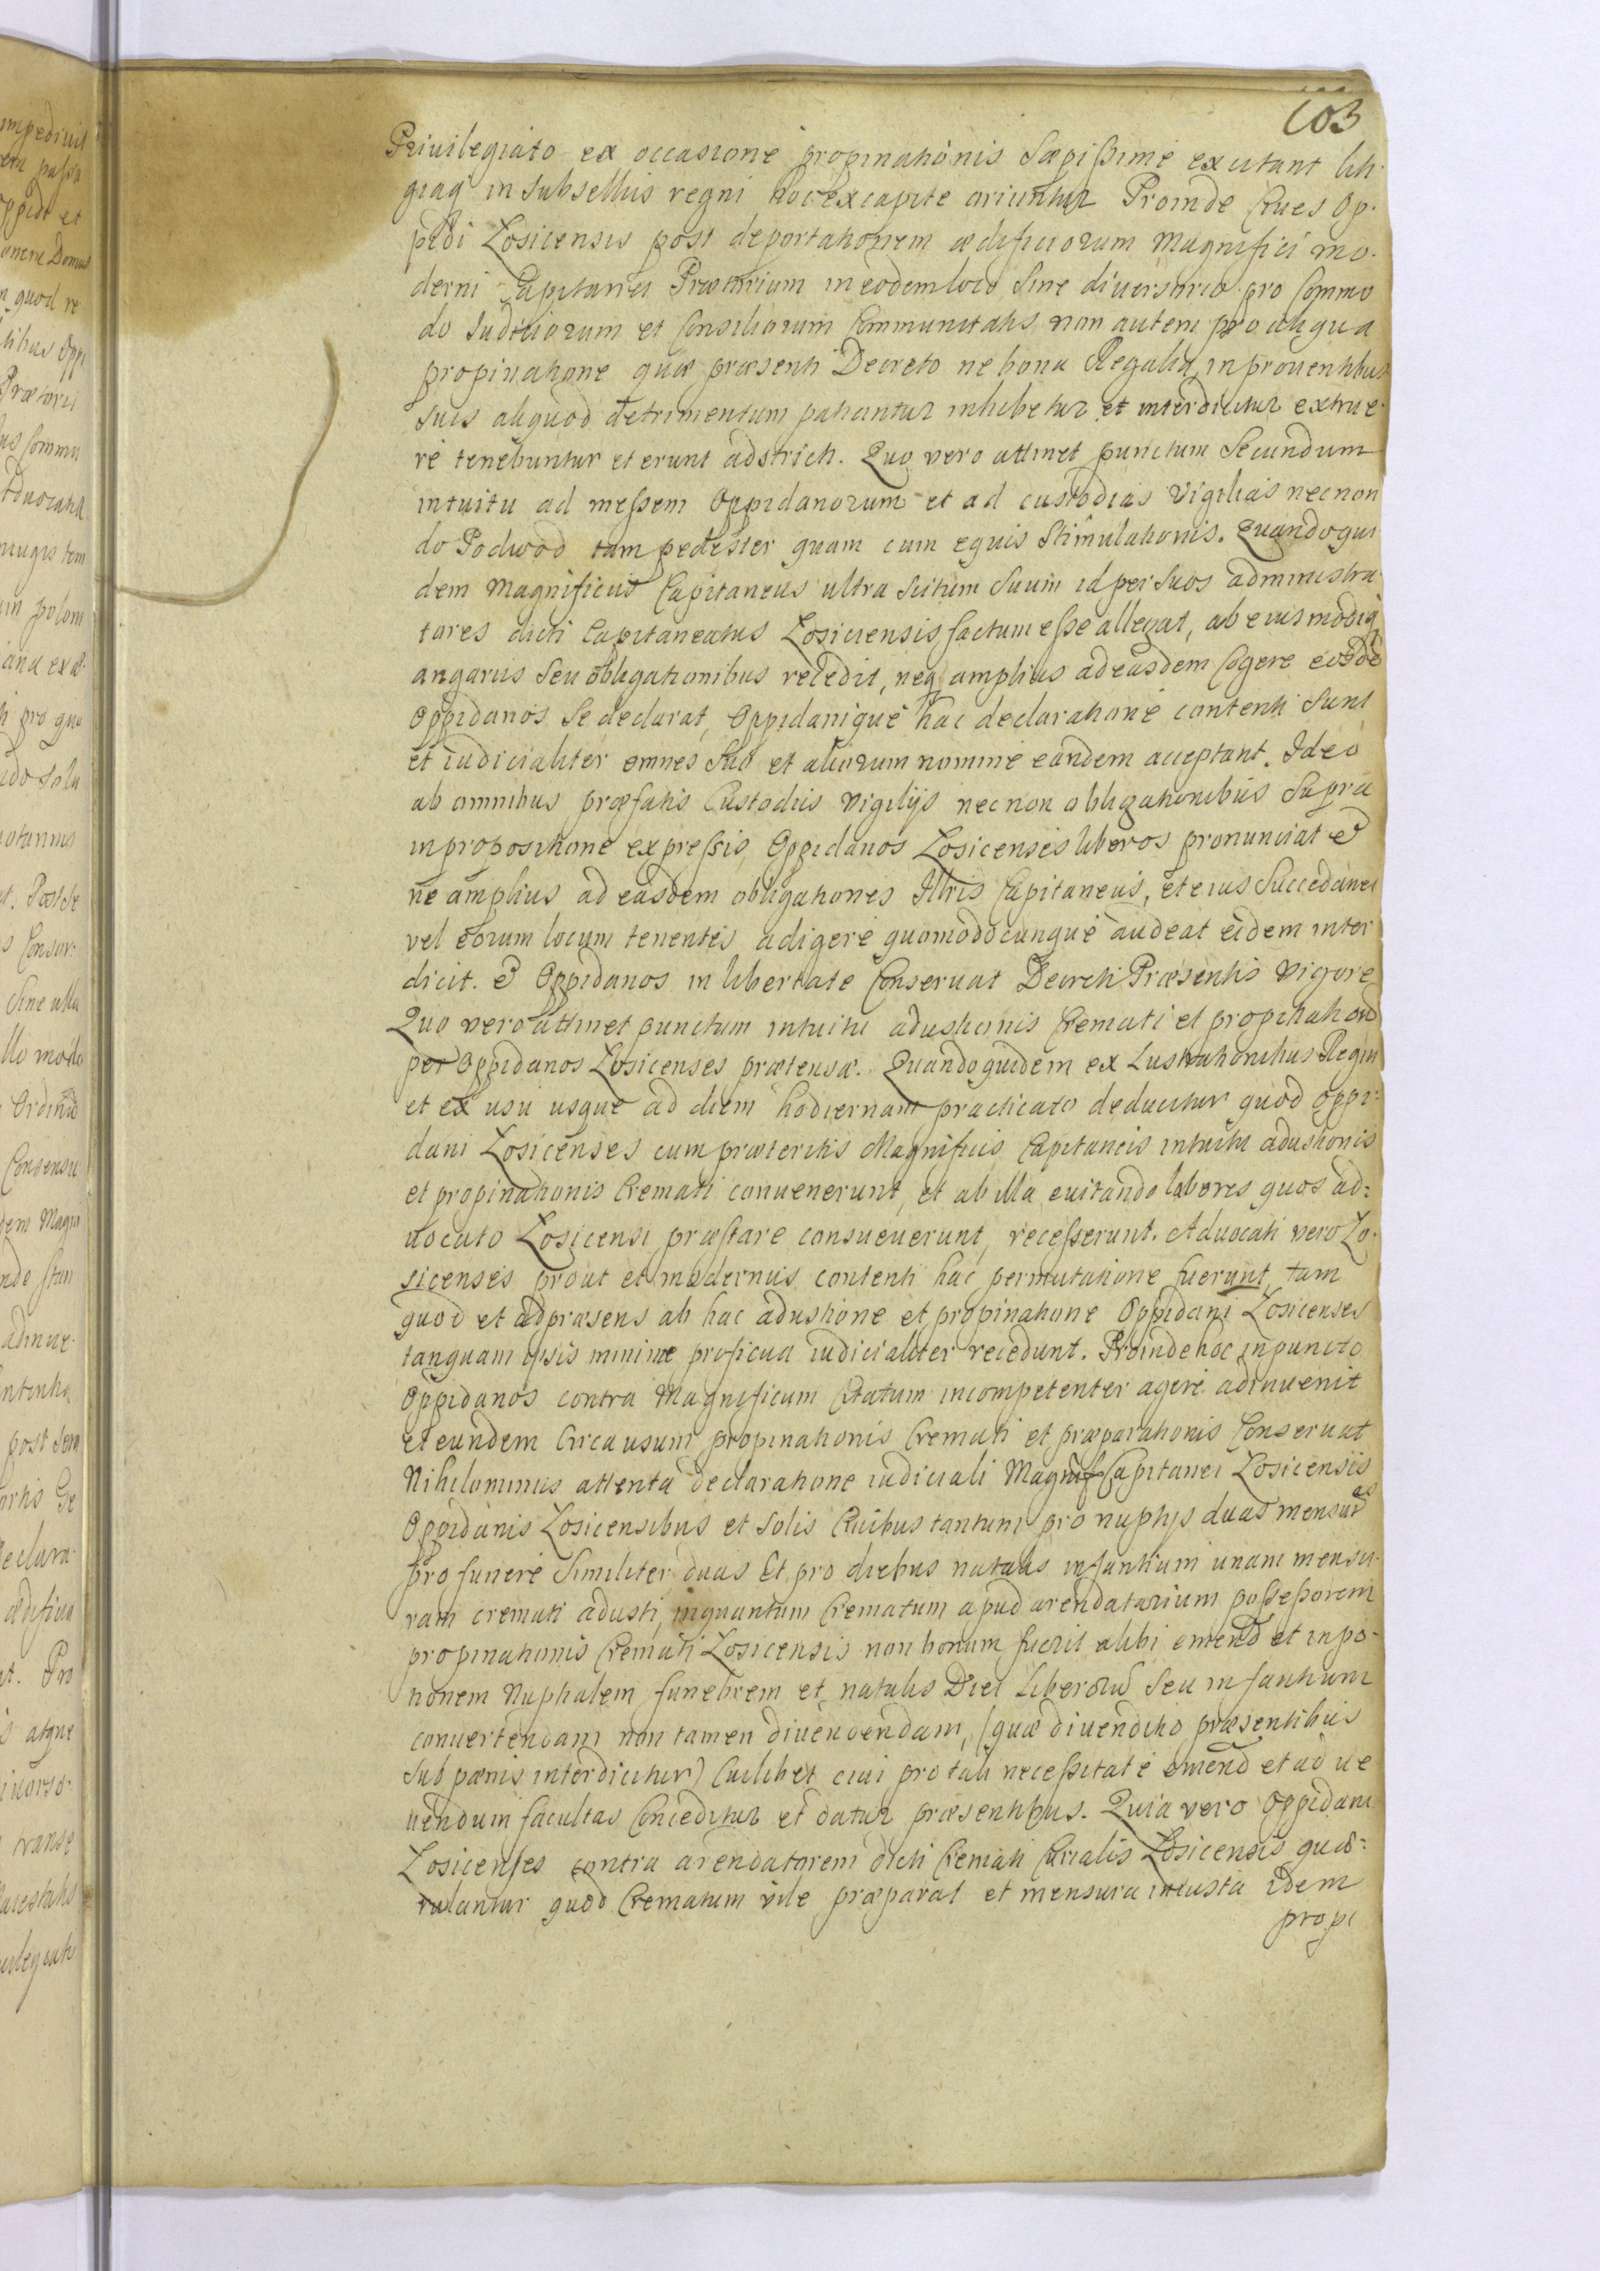 103
Privilegiato ex occasione propinationis Sæpissime excitant liti-
giaq in Subsellijs regni hoc ex capite oriuntur Proinde Cives Op-
pidi Łosicensis post deportationem ædificiorum Magnifici mo-
derni Capitanei Prætorium in eodem loco Sine diversorio pro Commo
do Iudiciorum et Consiliorum Communitatis non autem pro aliqua
propinatione quæ præsenti Decreto ne bona Regalia in proventibus
Suis aliquod detrimentum patiantur inhibetur et interdicitur extrue-
re tenebuntur et erunt adstricti. Quo vero attinet punctum Secundum
intuitu ad messem Oppidanorum et ad custodias Vigilias necnon
do Podwod tam pedester quam cum equis Stimulationis. Quandoqui
dem Magnificus Capitaneus ultra Scitum Suum id per Suos administra
tores dicti Capitaneatus Łosicensis factum esse allegat, ab eiusmodi
angarijs Seu obligationibus recedit, neq amplius ad easdem Cogere eosde
Oppidanos Se declarat, Oppidanique hac declaratione contenti Sunt
et iudicialiter omnes Suo et aliorum nomine eandem acceptant. Ideo
ab omnibus præfatis Custodiis Vigilijs necnon obligationibus Supra
in propositione expressis Oppidanos Łosicenses liberos pronunciat et
ne amplius ad easdem obligationes Illris Capitaneus, et eius Succedanei
vel eorum locum tenentes adigere quomodocunque audeat eidem inter
dicit. et Oppidanos in libertate Conservat Decreti Præsentis Vigore
Quo vero attinet punctum intuitu adustionis Cremati et propinationis
per Oppidanos Łosicenses prætensæ. Quandoquidem ex Lustrationibus Regni
et ex usu usque ad diem hodiernam practicato deducitur quod Oppi-
dani Łosicenses cum præteritis Magnificis Capitaneis intuitu adustionis
et propinationis Cremati convenerunt, et ab illa evitando labores quos ad=
vocato Łosicensi præstare consueverunt, recesserunt. Advocati vero Ło-
sicenses prout et modernus contenti hac permutatione fuerunt, tam
quod et ad præsens ab hac adustione et propinatione Oppidani Łosicenses
tanquam ipsis minime proficua iudicialiter recedunt. Proinde hoc in puncto
Oppidanos contra Magnificum Citatum incompetenter agere adinvenit
et eundem Circa usum propinationis Cremati et præparationis Conservat
Nihilominus attenta declaratione iudiciali Magnif Capitanei Łosicensis
Oppidanis Łosicensibus et Solis Civibus tantum pro nuptijs duas mensuras
pro funere Similiter duas Et pro diebus natalis infantium unam mensu-
ram cremati adusti, inquantum Crematum apud arendatarium possessorem
propinationis Cremati Łosicensis non bonum fuerit alibi emend et in po-
tionem Nuptialem funebrem et natalis Diei liberorum Seu infantium
convertendam non tamen divendendam, (quæ divenditio præsentibus
Sub pœnis interdicitur) Cuilibet civi pro tali necessitate emend et ad ve
hendum facultas Conceditur et datur præsentibus. Quia vero Oppidani
Łosicenses contra arendatarem dicti Cremati Curialis Łosicensis quæ=
rulantur quod Crematum vile præparat et mensura iniusta idem
propi